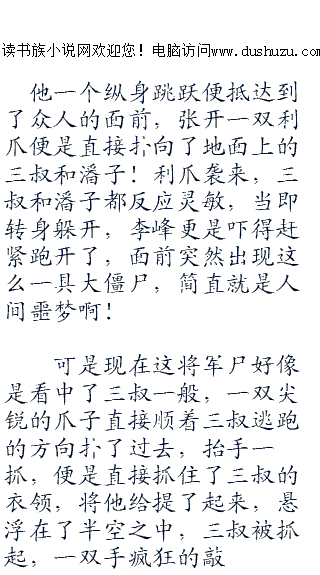 读书族小说网欢迎您！电脑访问www.dushuzu.com
他一个纵身跳跃便抵达到
了众人的面前，张开一双利
爪便是直接扑向了地面上的
三叔和潘子！利爪袭来，三
叔和潘子都反应灵敏，当即
转身躲开，李峰更是吓得赶
紧跑开了，面前突然出现这
么一具大僵尸，简直就是人
间噩梦啊！
可是现在这将军尸好像
是看中了三叔一般，一双尖
锐的爪子直接顺着三叔逃跑
的方向扑了过去，抬手一
抓，便是直接抓住了三叔的
衣领，将他给提了起来，悬
浮在了半空之中，三叔被抓
起，一双手疯狂的敲